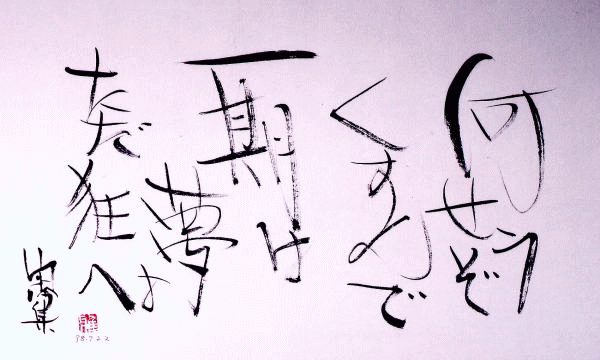 何せうぞ
くすんで
一期は
夢よ
ただ狂へ
閑吟集
98.7.22